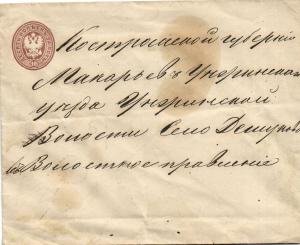 Костромской губернии
Макарьевъ Унжинскаго
уезда Унжинской
Волости Село
въ Волостное правление